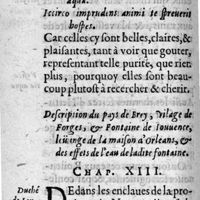 aqua.
Iccirco imprudens animi te spreuerit
hospes.
Car celles cy sont belles, claires, &
plaisantes, tant à voir que gouter,
representant telle purité, que rien
plus, pourquoy elles sont beau-
coup plustost à rechercher & cherir.
Description du pays de Brey, Vilage de
Forges, & Fontaine de Iouuence,
de la maison d'Orleans, &
des effets de l'eau de ladite fontaine.
CHAP. XIII.
Duché
DEdans les enclaues de la pro-